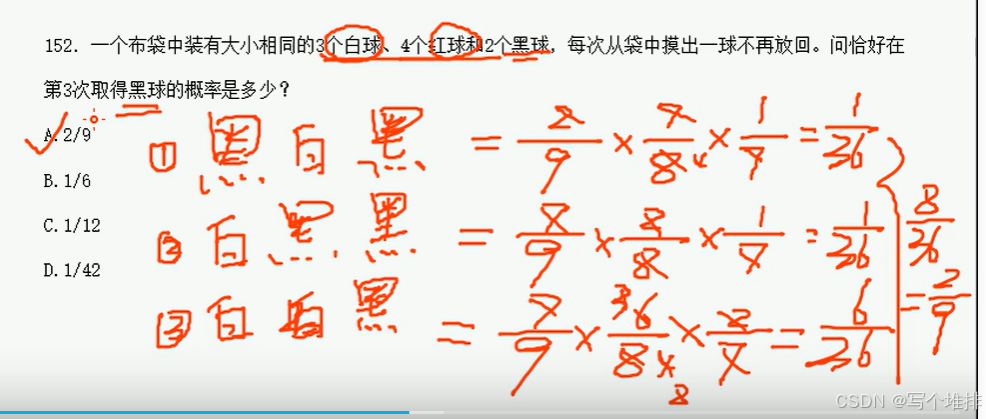 152. 一个布袋中装有大小相同的3个白球、4个红球和2个黑球，每次从袋中摸出一球不再放回。问恰好在
第3次取得黑球的概率是多少？
A.2/9
B.1/6
C.1/12
D.1/42
① 黑 白 黑 = 2/9 × 7/8 4 × 1/7 = 1/36
② 白 黑 黑 = 7/9 × 2/8 × 1/7 = 1/36
③ 白 白 黑 = 7/9 × 6/8 3 4 × 2/7 = 6/36
8/36
= 2/9
CSDN @写个堆排